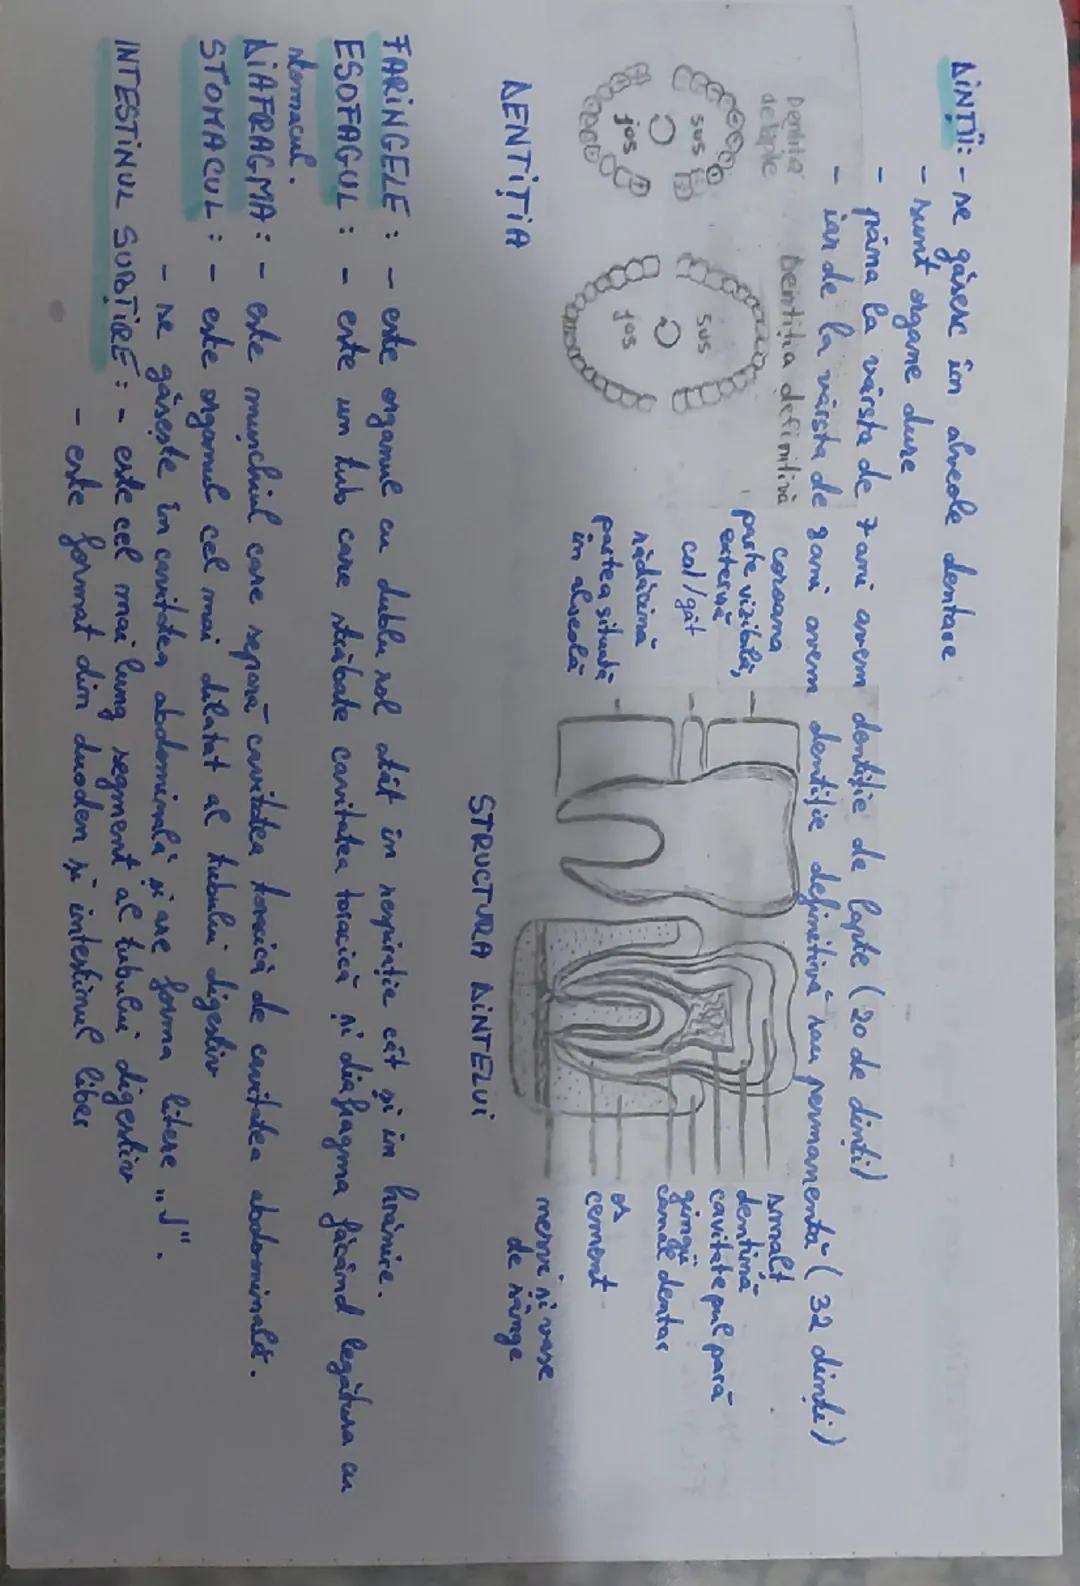 DINȚII: - se găsesc în alveole dentare
- sunt organe dure
- până la vârsta de 7 ani avem dentiție de lapte (20 de dinți)
- iar de la vârsta de 7 ani avem dentiție definitivă sau permanentă (32 dinți)
Dentița de lapte
Dentiția definitivă
sus
jos
sus
jos
coroana
parte vizibilă,
externă
col/gât
rădăcina
partea situată
în alveolă
smalț
dentină
cavitate pulpară
gingii
canal dentar
os
cement
nervi și vase
de sânge
DENTIȚIA
STRUCTURA DINTELUI
FARINGELE: - este organul cu dublu rol atât în respirație cât și în hrănire.
ESOFAGUL: - este un tub care străbate cavitatea toracică și diafragma făcând legătura cu
stomacul.
DIAFRAGMA: - este mușchiul care separă cavitatea toracică de cavitatea abdominală.
STOMACUL: - este organul cel mai dilatat al tubului digestiv
- se găsește în cavitatea abdominală și are forma litere „J".
INTESTINUL SUBȚIRE: - este cel mai lung segment al tubului digestiv
- este format din duoden și intestinul liber